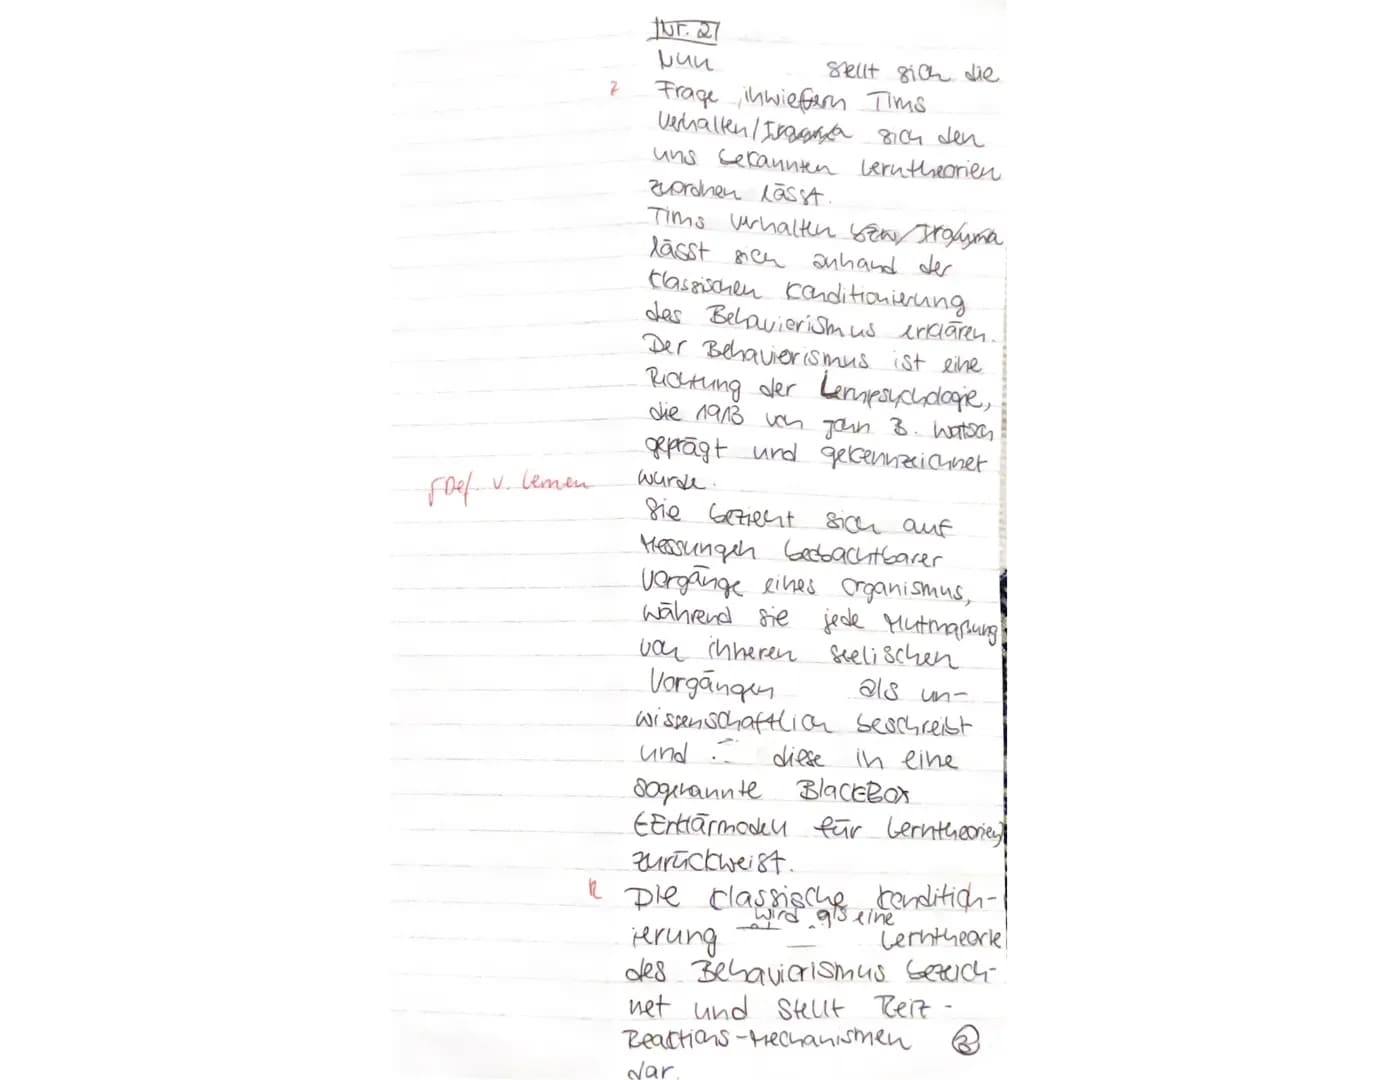 Nr. 2
Nun stellt sich die
Z Frage, inwiefern Tims
Verhalten/ sich den
uns bekannten Lerntheorien
zuordnen lässt.
Tims Verhalten bzw/
lässt sich anhand der
klassischen Konditionierung
des Behavierismus erklären.
Der Behavierismus ist eine
Richtung der Lernpsychologie,
die 1913 von John B. Watson
geprägt und gekennzeichnet
Def. v. Lernen wurde.
Sie bezieht sich auf
Messungen beobachtbarer
Vorgänge eines Organismus,
während sie jede Mutmaßung
von inneren seelischen
Vorgängen als un-
wissenschaftlich beschreibt
und diese in eine
sogenannte BlackBox
(Erklärmodell für Lerntheorien)
zurückweist.
R Die klassische Kondition-
wird als eine
ierung Lerntheorie
des Behaviorismus bezeich-
net und stellt Reiz-
Reaktions-Mechanismen ③
dar.